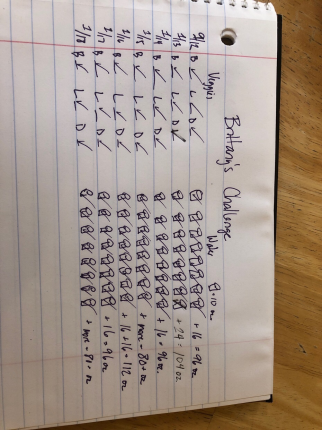 Brittany's Challenge
Veggies Water = 10 oz
9/12 B ✓ L ✓ D ✓ + 16 = 96 oz
1/13 B ✓ L ✓ D ✓ + 24 = 104 oz
1/14 B ✓ L ✓ D ✓ + 16 = 96 oz
1/15 B ✓ L ✓ D ✓ + more = 80+ oz
1/16 B ✓ L ✓ D ✓ + 16 + 16 = 112 oz
1/17 B ✓ L ✓ D ✓ + 16 = 96 oz
1/18 B ✓ L ✓ D ✓ + more = 80+ oz